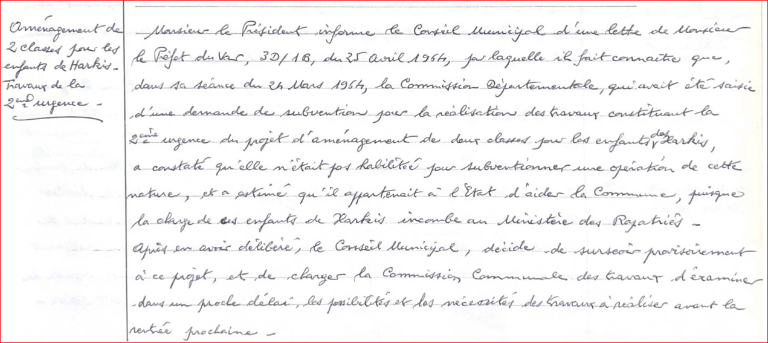 Aménagement de
2 classes pour les
enfants de Harkis -
Travaux de la
2ème urgence -
Monsieur le Président informe le Conseil Municipal d'une lettre de Monsieur
le Préfet du Var, 3D/1B, du 25 Avril 1964, par laquelle il fait connaître que,
dans sa séance du 24 Mars 1964, la Commission Départementale, qui avait été saisie
d'une demande de subvention pour la réalisation des travaux constituant la
2ème urgence du projet d'aménagement de deux classes pour les enfants des Harkis,
a constaté qu'elle n'était pas habilitée pour subventionner une opération de cette
nature, et a estimé qu'il appartenait à l'Etat d'aider la Commune, puisque
la charge de ces enfants de Harkis incombe au Ministère des Rapatriés -
Après en avoir délibéré, le Conseil Municipal, décide de surseoir provisoirement
à ce projet, et de charger la Commission Communale des travaux d'examiner
dans un proche délai, les possibilités et les nécessités des travaux à réaliser avant la
rentrée prochaine -